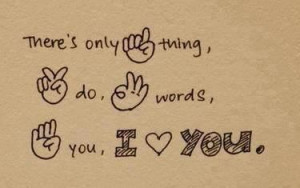 There's only thing,
do. words,
you, I ♡ YOU.